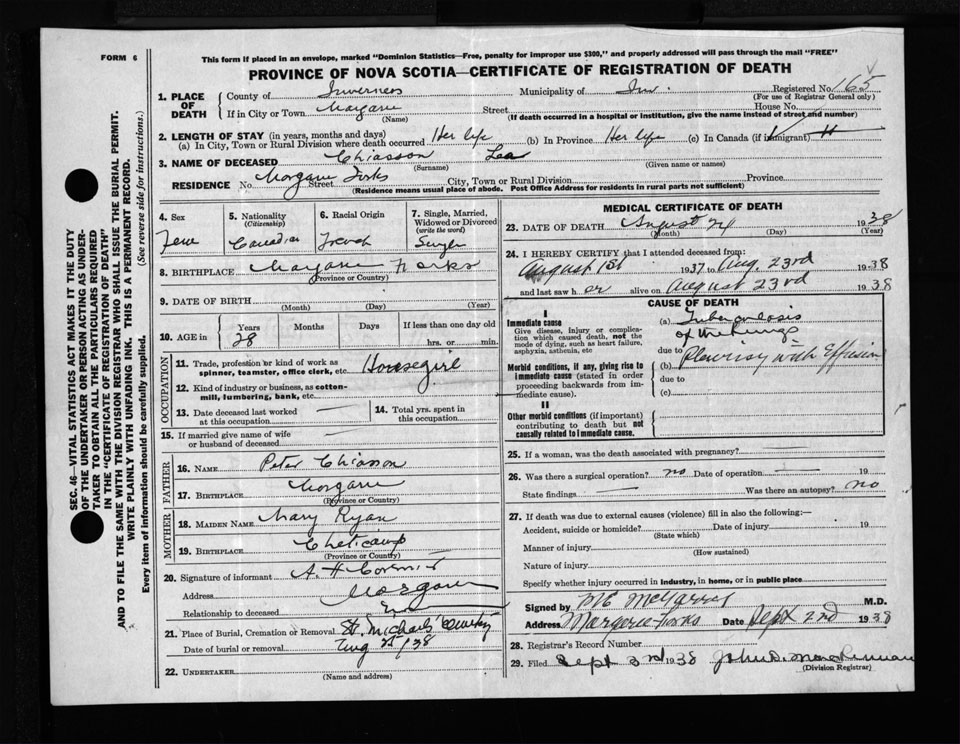 FORM 6
This form if placed in an envelope, marked "Dominion Statistics—Free, penalty for improper use $300," and properly addressed will pass through the mail "FREE"
PROVINCE OF NOVA SCOTIA—CERTIFICATE OF REGISTRATION OF DEATH
1. PLACE OF DEATH
County of Inverness Municipality of Inv. Registered No. 165
(For use of Registrar General only)
If in City or Town Street House No.
(Name) (If death occurred in a hospital or institution, give the name instead of street and number)
2. LENGTH OF STAY (in years, months and days)
(a) In City, Town or Rural Division where death occurred Her life (b) In Province Her life (c) In Canada (if immigrant)
3. NAME OF DECEASED Chiasson Lea
(Surname) (Given name or names)
RESIDENCE No. Street City, Town or Rural Division Province
(Residence means usual place of abode. Post Office Address for residents in rural parts not sufficient)
4. Sex Fem
5. Nationality (Citizenship) Canadian
6. Racial Origin French
7. Single, Married, Widowed or Divorced (write the word) Single
8. BIRTHPLACE Forks
(Province or Country)
9. DATE OF BIRTH
(Month) (Day) (Year)
10. AGE in Years Months Days If less than one day old
28 hrs. or min.
OCCUPATION
11. Trade, profession or kind of work as spinner, teamster, office clerk, etc. Housegirl
12. Kind of industry or business, as cotton-mill, lumbering, bank, etc.
13. Date deceased last worked at this occupation —
14. Total yrs. spent in this occupation
15. If married give name of wife or husband of deceased —
FATHER
16. NAME Peter Chiasson
17. BIRTHPLACE
(Province or Country)
MOTHER
18. MAIDEN NAME Mary Ryan
19. BIRTHPLACE Cheticamp
(Province or Country)
20. Signature of informant A. H.
Address
Relationship to deceased
21. Place of Burial, Cremation or Removal St. Michaels Cemetery
Date of burial or removal Aug 25/38
22. UNDERTAKER
(Name and address)
MEDICAL CERTIFICATE OF DEATH
23. DATE OF DEATH August 24 1938
(Month) (Day) (Year)
24. I HEREBY CERTIFY that I attended deceased from:
August 1st 1937 to Aug. 23rd 1938
and last saw h er alive on August 23rd 1938
CAUSE OF DEATH
I
Immediate cause
Give disease, injury or complication which caused death, not the mode of dying, such as heart failure, asphyxia, asthenia, etc
(a) Tuberculosis of the lungs
due to
Morbid conditions, if any, giving rise to immediate cause (stated in order proceeding backwards from immediate cause).
(b) Pleurisy with Effusion
due to
(c)
II
Other morbid conditions (if important) contributing to death but not causally related to immediate cause.
25. If a woman, was the death associated with pregnancy?
26. Was there a surgical operation? no Date of operation — 19
State findings — Was there an autopsy? no
27. If death was due to external causes (violence) fill in also the following:—
Accident, suicide or homicide? Date of injury 19
(State which)
Manner of injury
(How sustained)
Nature of injury
Specify whether injury occurred in industry, in home, or in public place
Signed by M.D.
Address Margaree Forks Date Sept 2nd 1938
28. Registrar's Record Number
29. Filed Sept 3rd 1938
(Division Registrar)
SEC. 46—VITAL STATISTICS ACT MAKES IT THE DUTY
OF THE UNDERTAKER OR PERSON ACTING AS UNDER-
TAKER TO OBTAIN ALL THE PARTICULARS REQUIRED
IN THE "CERTIFICATE OF REGISTRATION OF DEATH"
AND TO FILE THE SAME WITH THE DIVISION REGISTRAR WHO SHALL ISSUE THE BURIAL PERMIT.
WRITE PLAINLY WITH UNFADING INK. THIS IS A PERMANENT RECORD.
Every item of information should be carefully supplied. (See reverse side for instructions.)